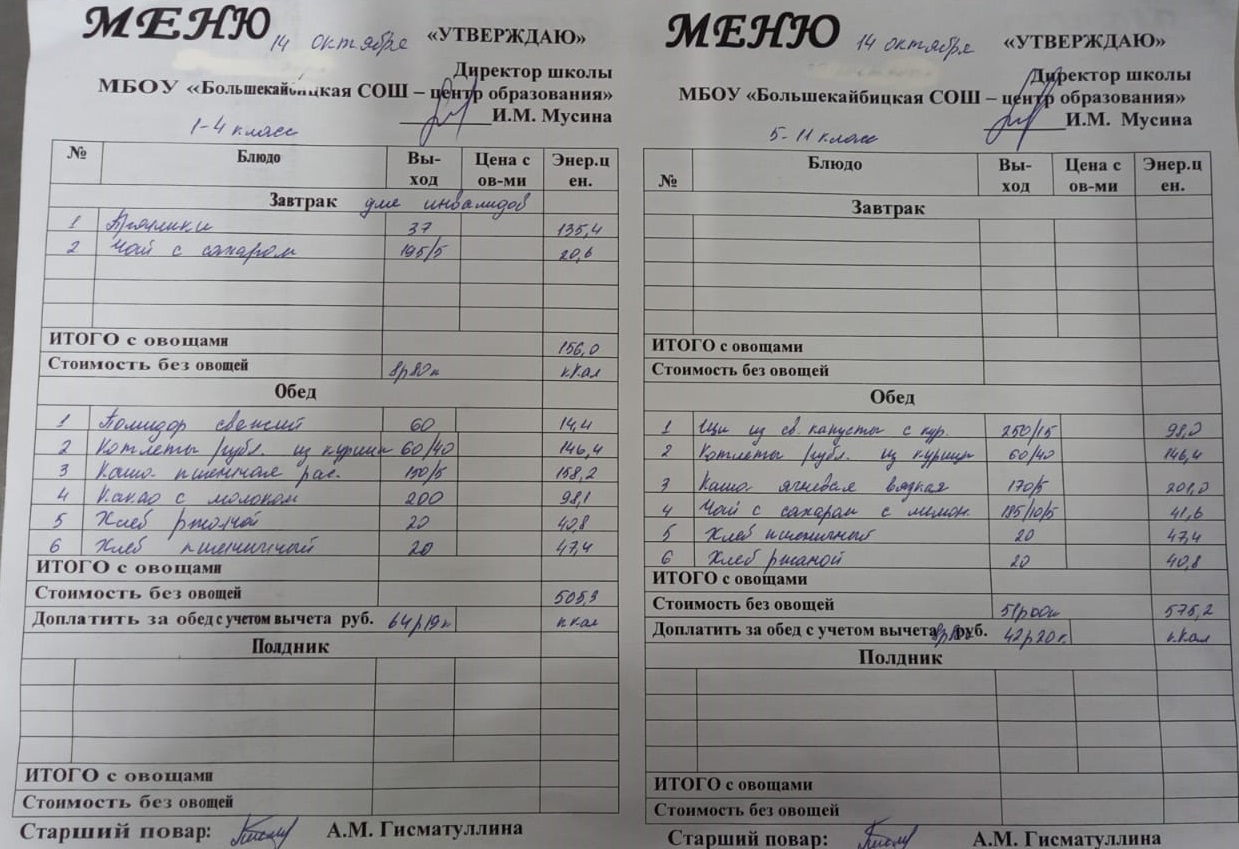 МЕНЮ 14 октября «УТВЕРЖДАЮ»
Директор школы
МБОУ «Большекайбицкая СОШ – центр образования»
И.М. Мусина
1-4 класс
№ Блюдо Вы-ход Цена с ов-ми Энер.ц ен.
Завтрак для инвалидов
1 Пряники 37 135,4
2 Чай с сахаром 195/5 20,6
ИТОГО с овощами 156,0
Стоимость без овощей 8р80к ккал
Обед
1 Помидор свежий 60 14,4
2 Котлеты рубл. из курицы 60/40 146,4
3 Каша пшеничная рас. 150/5 158,2
4 Какао с молоком 200 98,1
5 Хлеб ржаной 20 40,8
6 Хлеб пшеничный 20 47,4
ИТОГО с овощами
Стоимость без овощей 505,3
Доплатить за обед с учетом вычета руб. 64р19к ккал
Полдник
ИТОГО с овощами
Стоимость без овощей
Старший повар: А.М. Гисматуллина
МЕНЮ 14 октября «УТВЕРЖДАЮ»
Директор школы
МБОУ «Большекайбицкая СОШ – центр образования»
И.М. Мусина
5-11 класс
№ Блюдо Вы-ход Цена с ов-ми Энер.ц ен.
Завтрак
ИТОГО с овощами
Стоимость без овощей
Обед
1 Щи из св. капусты с кур. 250/15 98,0
2 Котлеты рубл. из курицы 60/40 146,4
3 Каша ячневая вязкая 170/5 201,0
4 Чай с сахаром с лимон. 185/10/5 41,6
5 Хлеб пшеничный 20 47,4
6 Хлеб ржаной 20 40,8
ИТОГО с овощами
Стоимость без овощей 51р00к 575,2
Доплатить за обед с учетом вычета руб. 42р20к. ккал
Полдник
ИТОГО с овощами
Стоимость без овощей
Старший повар: А.М. Гисматуллина